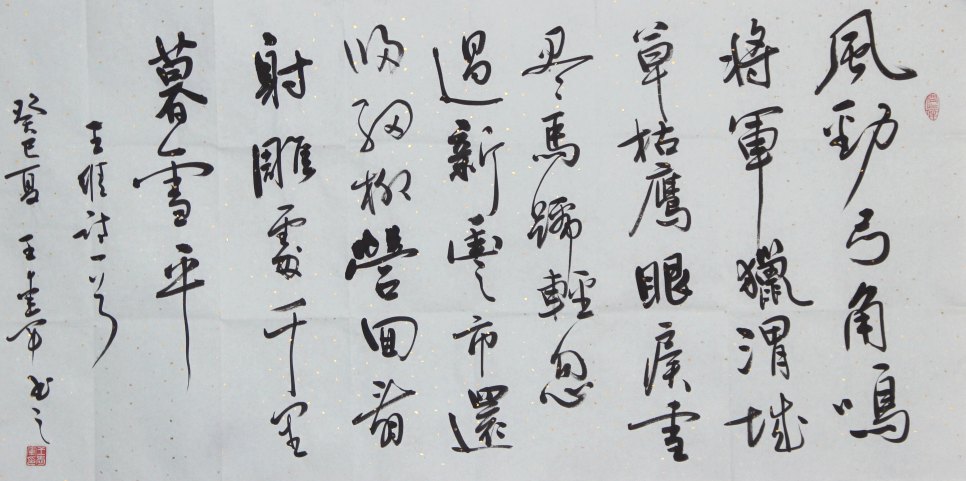 風勁弓角鳴
將軍獵渭城
草枯鷹眼疾雪
盡馬蹄輕忽
過新豐市還
歸細柳營回看
射雕處千里
暮雪平
王維詩一首
癸巳夏 王 书之